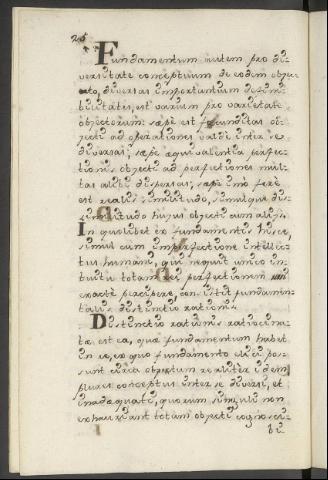 26
Fundamentum autem pro di-
versitate conceptuum de eodem objec-
to, diversas importantium
est varium pro varietate
objectorum: sæpe est fecunditas ob-
jecti ad operationes valde inter se
diversas, sæpe æquivalentia perfec-
tionis objecti ad perfectiones mul-
tas alibi dispersas, sæpe imo fere
est realis similitudo, simulque dis-
similitudo hujus objecti cum alijs.
In quolibet ex fundamentis hisce,
simul cum imperfectione intellec-
tus humani, qui nequit unico in-
tuitu totam rei perfectionem
exacte percipere, consistit fundamen-
talis distinctio rationis.
Distinctio rationis ratiocina-
tæ est ea, quæ fundamentum habet
in re, ex quo fundamento elici pos-
sunt circa objectum realiter idem
plures conceptus inter se diversi, et
inadæquati, quorum singuli non
exhauriant totam objecti cognosci-
bi-